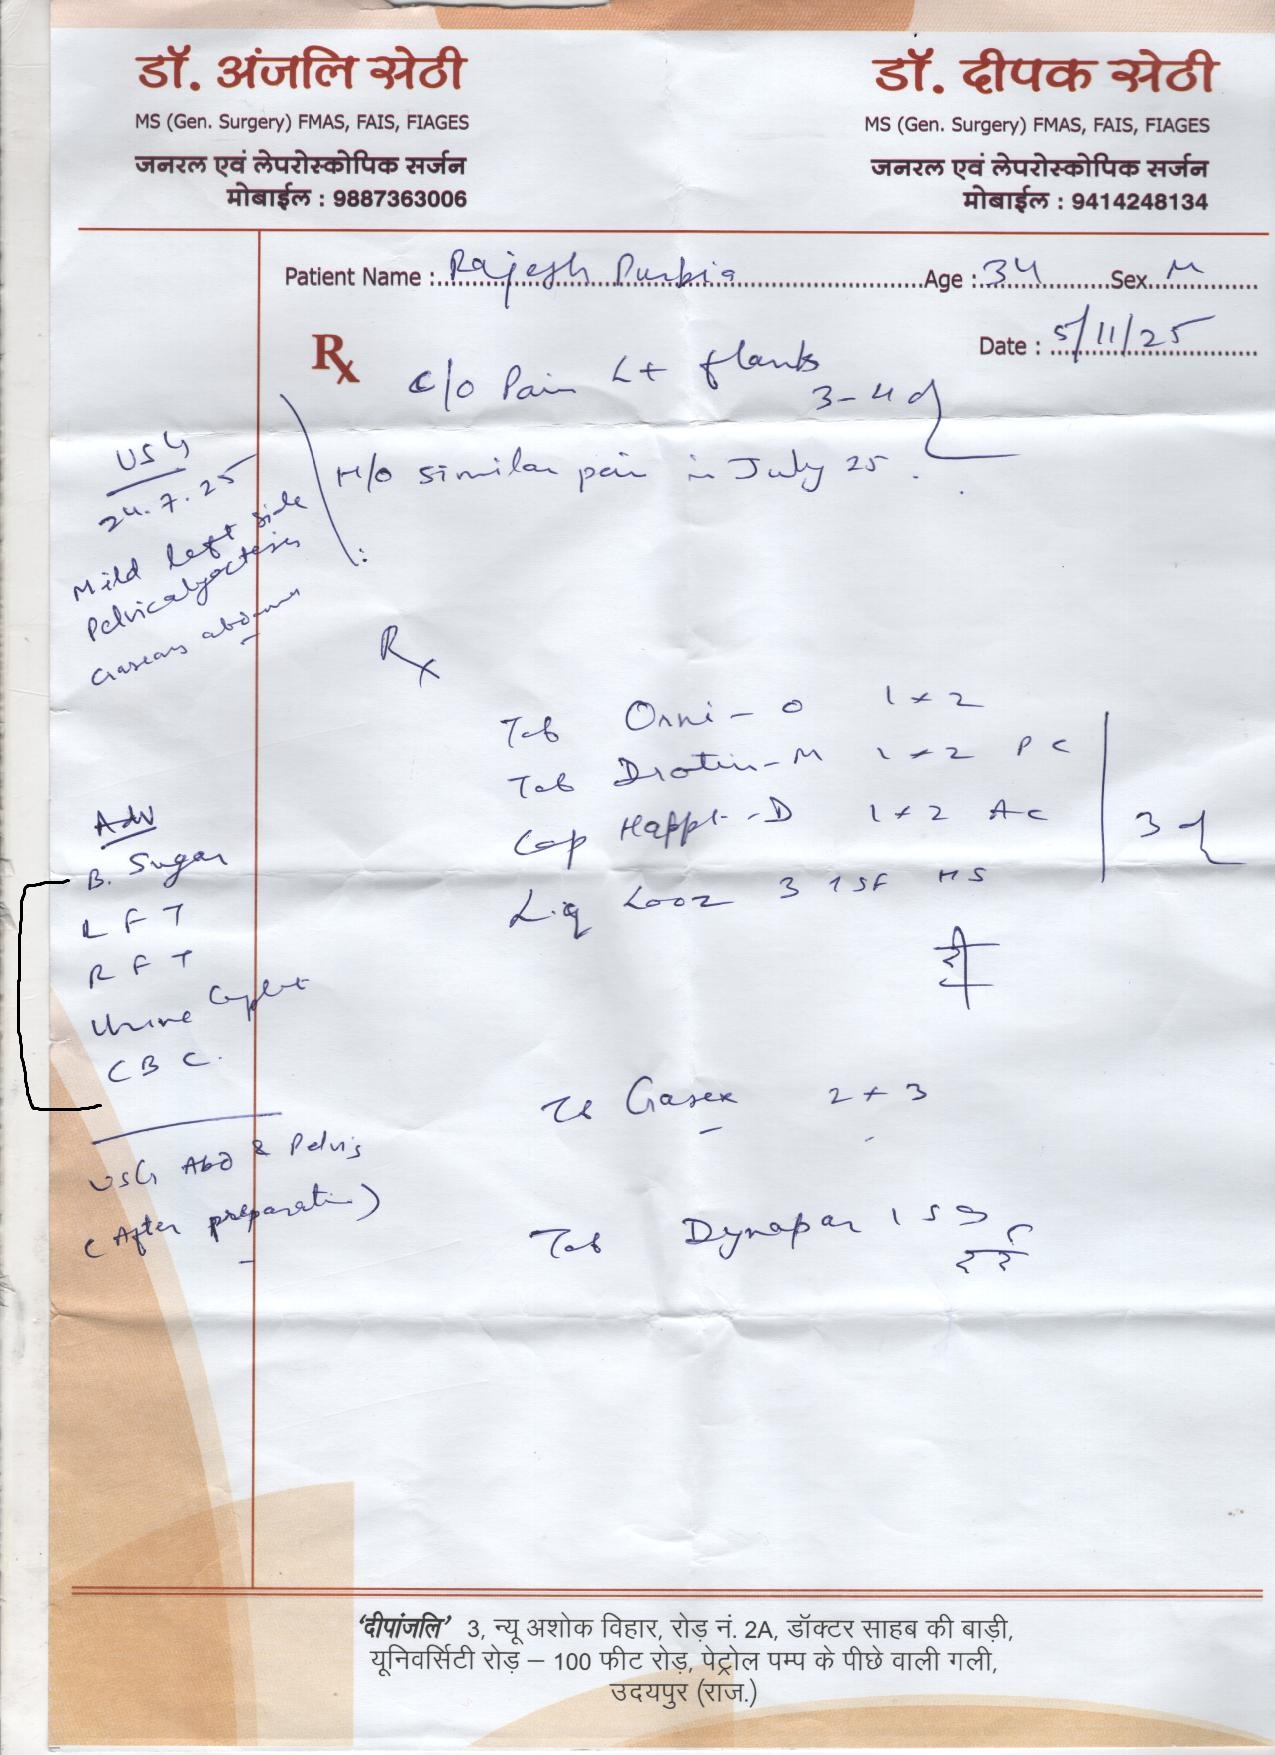 डॉ. अंजलि सेठी
MS (Gen. Surgery) FMAS, FAIS, FIAGES
जनरल एवं लेपरोस्कोपिक सर्जन
मोबाईल : 9887363006
डॉ. दीपक सेठी
MS (Gen. Surgery) FMAS, FAIS, FIAGES
जनरल एवं लेपरोस्कोपिक सर्जन
मोबाईल : 9414248134
Patient Name : Rajesh Purbia Age : 34 Sex M
Date : 5/11/25
Rx
c/o Pain Lt flanks
3-4 d
H/o similar pain in July 25.
USG
24.7.25
Mild Left side
Rx
Tab Orni-O 1 x 2
Tab Drotin-M 1 x 2 PC
Cap Happi-D 1 x 2 AC
3 d
Liq Looz 3 TSF HS
Adv
B. Sugar
LFT
RFT
Urine Complet
CBC.
Tab Gasex 2 x 3
USG Abd & Pelvis
(After preparation)
Tab Dynapar 1 SOS
दर्द
'दीपांजलि' 3, न्यू अशोक विहार, रोड़ नं. 2A, डॉक्टर साहब की बाड़ी,
यूनिवर्सिटी रोड़ – 100 फीट रोड़, पेट्रोल पम्प के पीछे वाली गली,
उदयपुर (राज.)